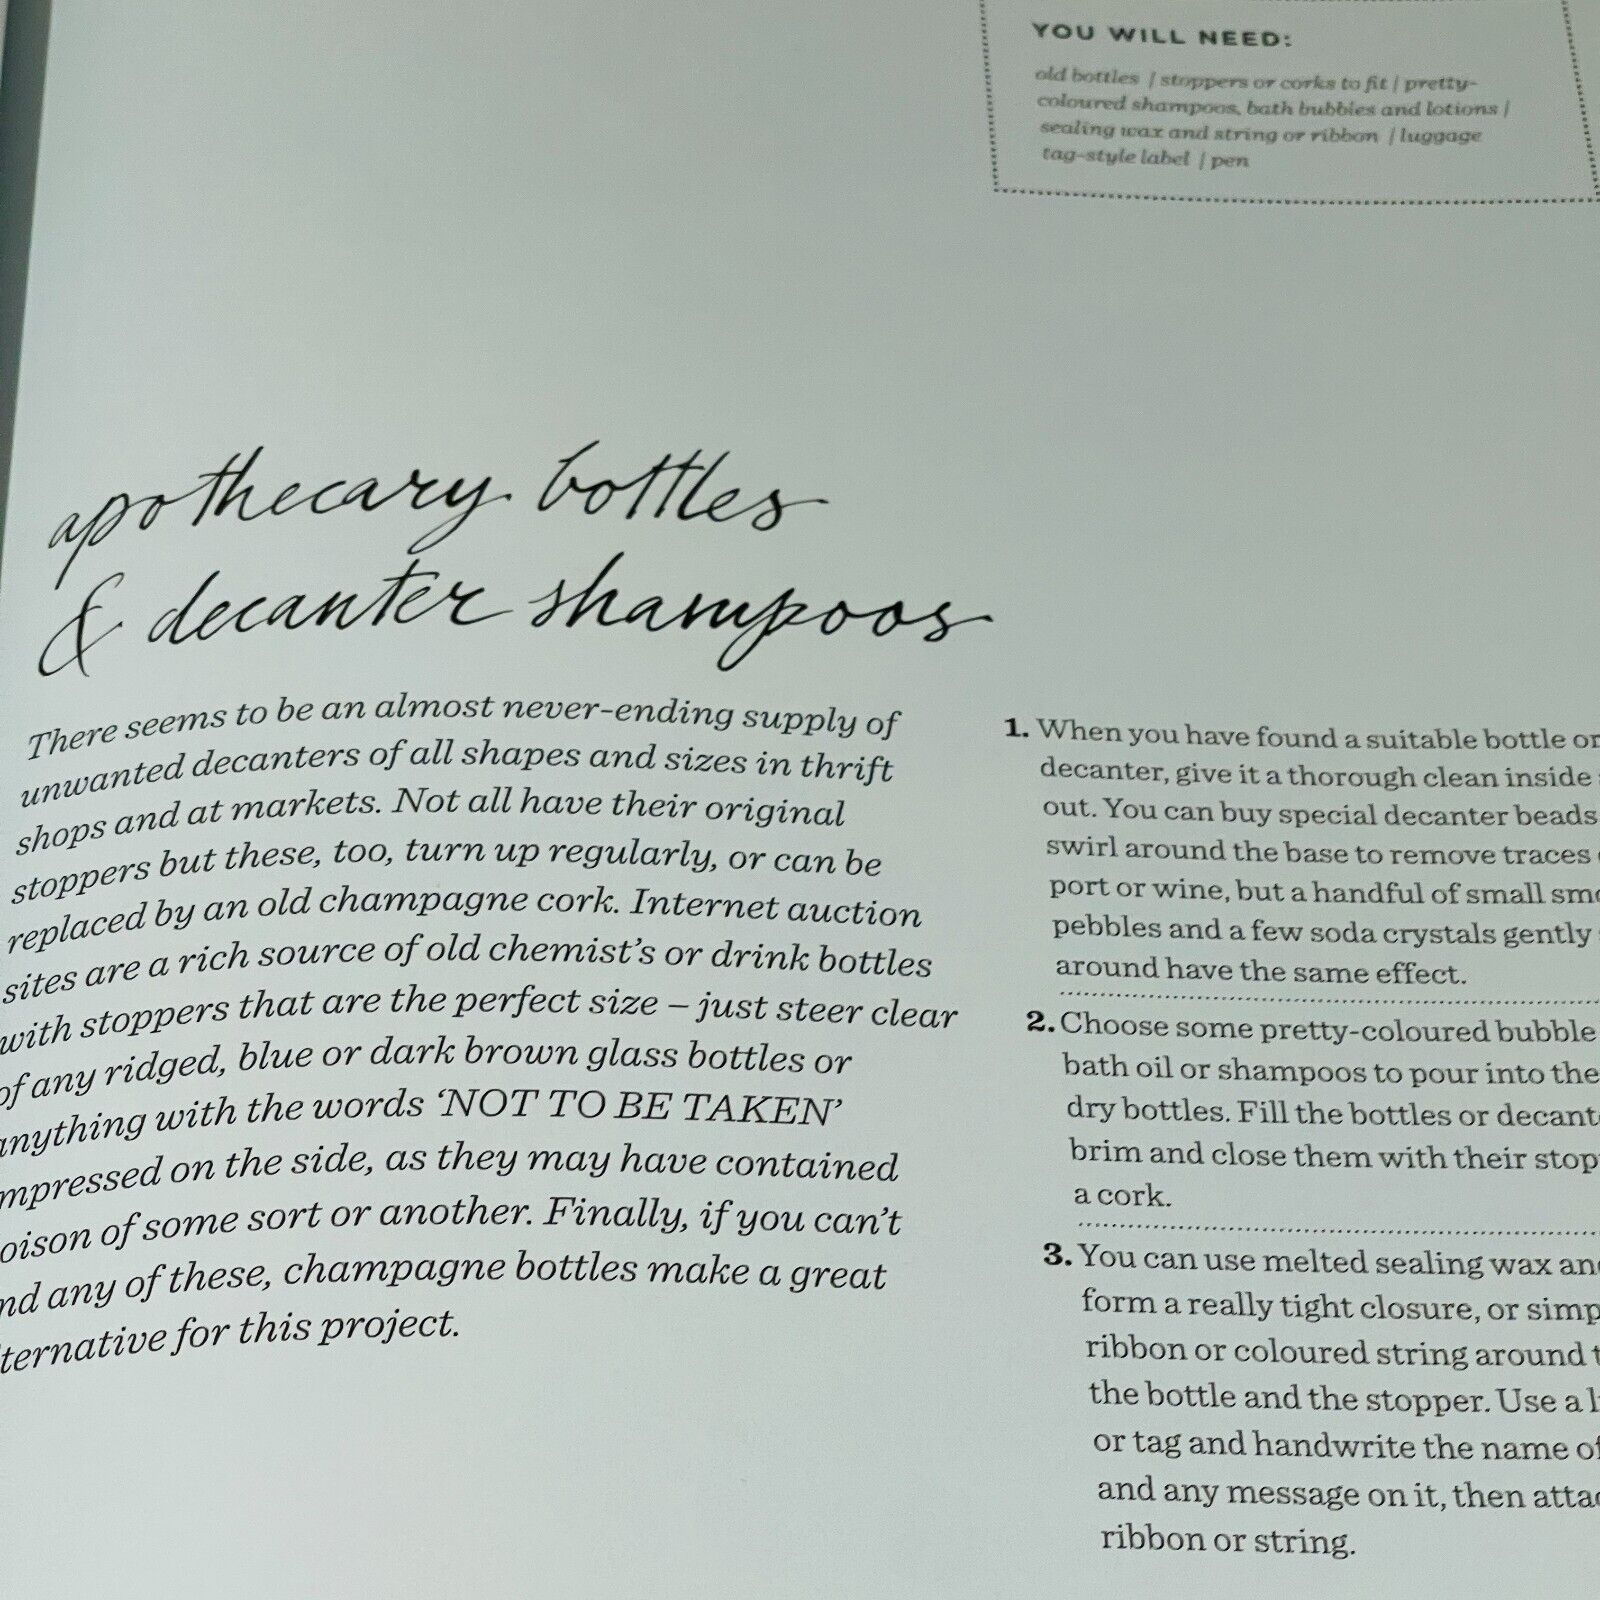 YOU WILL NEED:
old bottles | stoppers or corks to fit | pretty-
coloured shampoos, bath bubbles and lotions |
sealing wax and string or ribbon | luggage
tag-style label | pen
apothecary bottles
& decanter shampoos
There seems to be an almost never-ending supply of
unwanted decanters of all shapes and sizes in thrift
shops and at markets. Not all have their original
stoppers but these, too, turn up regularly, or can be
replaced by an old champagne cork. Internet auction
sites are a rich source of old chemist's or drink bottles
with stoppers that are the perfect size – just steer clear
of any ridged, blue or dark brown glass bottles or
anything with the words 'NOT TO BE TAKEN'
mpressed on the side, as they may have contained
oison of some sort or another. Finally, if you can't
nd any of these, champagne bottles make a great
ternative for this project.
1. When you have found a suitable bottle or
decanter, give it a thorough clean inside
out. You can buy special decanter beads
swirl around the base to remove traces
port or wine, but a handful of small smo
pebbles and a few soda crystals gently
around have the same effect.
2. Choose some pretty-coloured bubble
bath oil or shampoos to pour into the
dry bottles. Fill the bottles or decant
brim and close them with their stop
a cork.
3. You can use melted sealing wax an
form a really tight closure, or simp
ribbon or coloured string around t
the bottle and the stopper. Use a l
or tag and handwrite the name of
and any message on it, then attac
ribbon or string.